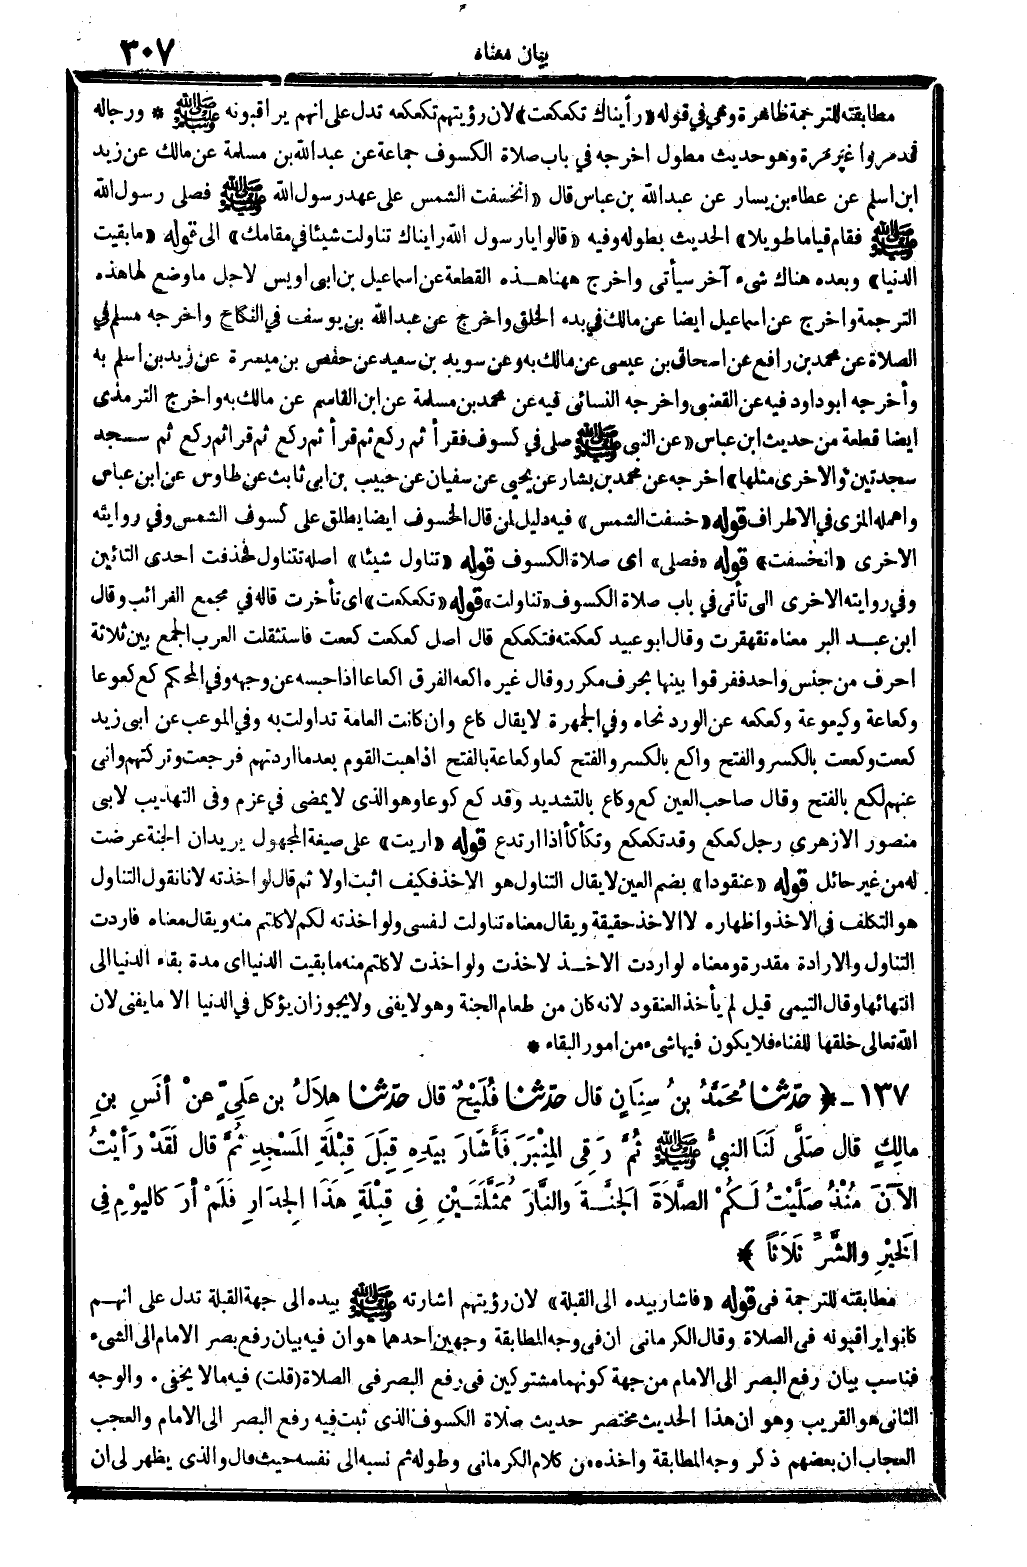 بيان معناه
٣٠٧
مطابقته للترجمة ظاهرة وهي في قوله «رأيناك تكعكعت» لان رؤيتهم تكعكعه تدل على انهم يراقبونه ﷺ * ورجاله
قد مروا غير مرة وهو حديث مطول اخرجه في باب صلاة الكسوف جماعة عن عبدالله بن مسلمة عن مالك عن زيد
ابن اسلم عن عطاء بن يسار عن عبدالله بن عباس قال «انخسفت الشمس على عهد رسول الله ﷺ فصلى رسول الله
ﷺ فقام قياما طويلا» الحديث بطوله وفيه «قالوا يارسول الله رايناك تناولت شيئا في مقامك» الى قوله «ما بقيت
الدنيا» وبعده هناك شيء آخر سيأتي واخرج ههنا هذه القطعة عن اسماعيل بن ابى اويس لاجل ما وضع لها هذه
الترجمة واخرج عن اسماعيل ايضا عن مالك في بدء الخلق واخرج عن عبدالله بن يوسف في النكاح واخرجه مسلم في
الصلاة عن محمد بن رافع عن اسحاق بن عيسى عن مالك به وعن سويد بن سعيد عن حفص بن ميسرة عن زيد بن اسلم به
وأخرجه ابو داود فيه عن القعنبي واخرجه النسائي فيه عن محمد بن مسلمة عن ابن القاسم عن مالك به واخرج الترمذى
ايضا قطعة من حديث ابن عباس «عن النبي ﷺ صلى في كسوف فقرأ ثم ركع ثم قرأ ثم ركع ثم قرا ثم ركع ثم سجد
سجدتين والاخرى مثلها» اخرجه عن محمد بن بشار عن يحيى عن سفيان عن حبيب بن ابى ثابت عن طاوس عن ابن عباس
واهمله المزى في الاطراف قوله «خسفت الشمس» فيه دليل لمن قال الخسوف ايضا يطلق على كسوف الشمس وفي روايته
الاخرى «انخسفت» قوله «فصلى» اى صلاة الكسوف قوله «تناول شيئا» اصله تتناول فحذفت احدى التائين
وفي روايته الاخرى التى تأتى في باب صلاة الكسوف «تناولت» قوله «تكعكعت» اى تأخرت قاله في مجمع الغرائب وقال
ابن عبد البر معناه تقهقرت وقال ابو عبيد كعكعته فتكعكع قال اصل كعكعت كععت فاستثقلت العرب الجمع بين ثلاثة
احرف من جنس واحد ففرقوا بينها بحرف مكرر وقال غيره اكعه الفرق اكعاعا اذا حبسه عن وجهه وفي المحكم كع كعوعا
وكعاعة وكيعوعة وكعكعه عن الورد نحاه وفي الجمهرة لا يقال كاع وان كانت العامة تداولت به وفي الموعب عن ابى زيد
كععت وكععت بالكسر والفتح واكع بالكسر والفتح كعا وكعاعة بالفتح اذا هبت القوم بعد ما اردتهم فرجعت وتركتهم وانى
عنهم لكع بالفتح وقال صاحب العين كع وكاع بالتشديد وقد كع كوعا وهو الذى لا يمضى في عزم وفى التهذيب لابى
منصور الازهري رجل كعكع وقد تكعكع وتكأكأ اذا ارتدع قوله «اريت» على صيغة المجهول يريد ان الجنة عرضت
له من غير حائل قوله «عنقودا» بضم العين لا يقال التناول هو الاخذ فكيف اثبت اولا ثم قال لو اخذته لانا نقول التناول
هو التكلف في الاخذ واظهاره لا الاخذ حقيقة ويقال معناه تناولت لنفسى ولو اخذته لكم لاكلتم منه ويقال معناه فاردت
التناول والارادة مقدرة ومعناه لو اردت الاخذ لاخذت ولو اخذت لاكلتم منه ما بقيت الدنيا اى مدة بقاء الدنيا الى
انتهائها وقال التيمى قيل لم يأخذ العنقود لانه كان من طعام الجنة وهو لا يفنى ولا يجوز ان يؤكل في الدنيا الا ما يفنى لان
الله تعالى خلقها للفناء فلا يكون فيها شىء من امور البقاء *
١٣٧ - ﴿ حَدَّثَنَا مُحَمَّدُ بنُ سِنَانٍ قال حَدَّثَنَا فُلَيْحٌ قال حَدَّثَنَا هِلَالُ بن عَلِيٍّ عنْ أنَسِ بنِ
مالِكٍ قال صَلَّى لَنَا النبيُّ ﷺ ثُمَّ رَقِى المِنْبَرَ فَأَشَارَ بِيَدِهِ قِبَلَ قِبْلَةِ المَسْجِدِ ثُمَّ قال لَقَدْ رَأيْتُ
الآنَ مُنْذُ صَلَّيْتُ لَكُمْ الصَّلَاةَ الجَنَّةَ والنَّارَ مُمَثَّلَتَيْنِ فِى قِبْلَةِ هَذَا الجِدَارِ فَلَمْ أرَ كاليَوْمِ فِى
الخَيْرِ والشَّرِّ ثَلَاثاً ﴾
مطابقته للترجمة فى قوله «فاشار بيده الى القبلة» لان رؤيتهم اشارته ﷺ بيده الى جهة القبلة تدل على انهم
كانوا يراقبونه فى الصلاة وقال الكرمانى ان فى وجه المطابقة وجهين احدهما هو ان فيه بيان رفع بصر الامام الى الشىء
فناسب بيان رفع البصر الى الامام من جهة كونهما مشتركين فى رفع البصر فى الصلاة (قلت) فيه ما لا يخفى. والوجه
الثانى هو القريب وهو ان هذا الحديث مختصر حديث صلاة الكسوف الذى ثبت فيه رفع البصر الى الامام والعجب
العجاب ان بعضهم ذكر وجه المطابقة واخذه من كلام الكرمانى وطوله ثم نسبه الى نفسه حيث قال والذى يظهر لى ان